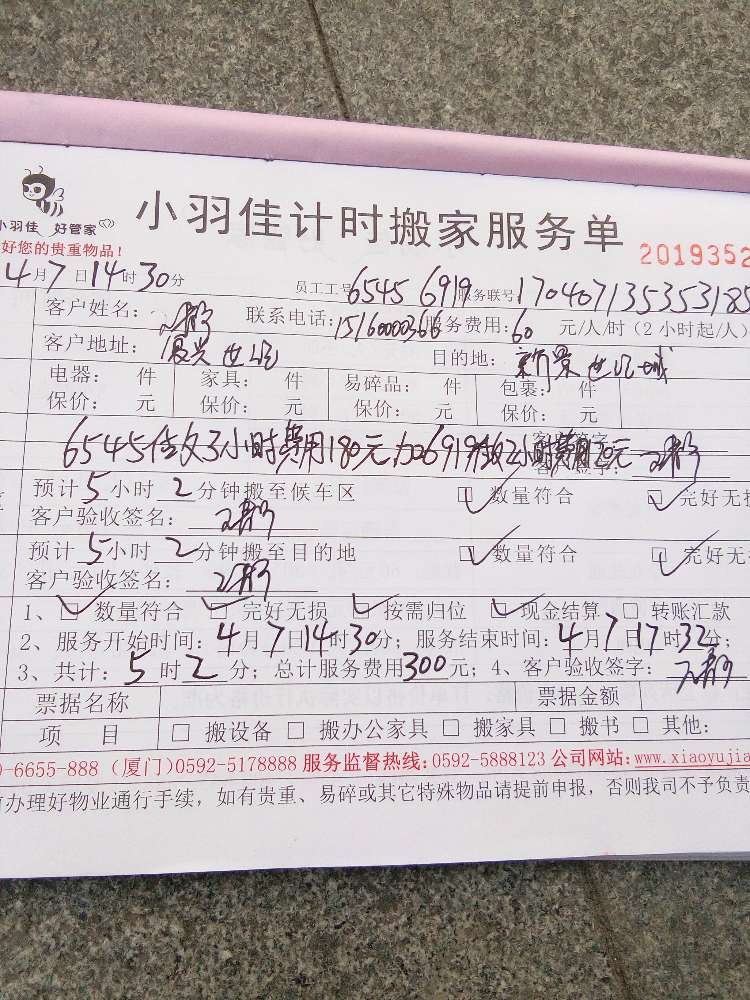 小羽佳 好管家
小羽佳计时搬家服务单
好您的贵重物品！
2019352
4月7日14时30分 员工工号 6545 6919 服务联号：
客户姓名： 联系电话： 服务费用：60 元/人/时（2小时起/人）
客户地址： 目的地：新景世纪城
电器： 件 家具： 件 易碎品： 件 包裹： 件
保价： 元 保价： 元 保价： 元 保价： 元
6545 3小时费用180元 6919
预计5小时2分钟搬至候车区 数量符合 完好无损
客户验收签名：
预计5小时2分钟搬至目的地 数量符合 完好无
客户验收签名：
1、□ 数量符合 □ 完好无损 □ 按需归位 □ 现金结算 □ 转账汇款
2、服务开始时间：4月7日14时30分；服务结束时间：4月7日17时32分；
3、共计：5时2分；总计服务费用300元；4、客户验收签字：
票据名称 票据金额
项 目 □ 搬设备 □ 搬办公家具 □ 搬家具 □ 搬书 □ 其他：
-6655-888（厦门）0592-5178888 服务监督热线：0592-5888123 公司网站：www.xiaoyujia
办理好物业通行手续，如有贵重、易碎或其它特殊物品请提前申报，否则我司不予负责